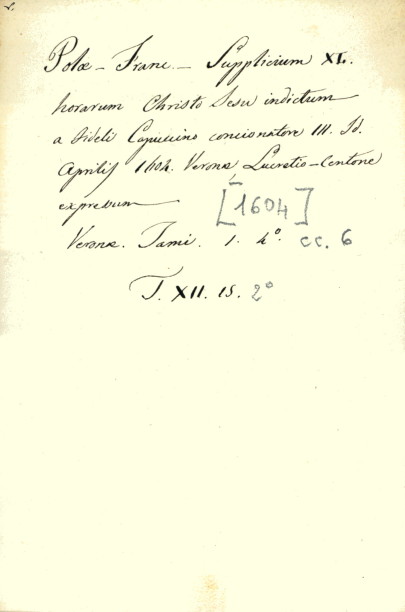 Polæ - Franc. - Supplicium XL.
horarum Christo Iesu indictum
a Fideli Capuccino concionatore III. Id.
Aprilis 1604. Veronæ, Lucretio-Centone
expressum [1604]
Veronæ. Tami. 1. 4º. cc. 6
T. XII. 15. 2º